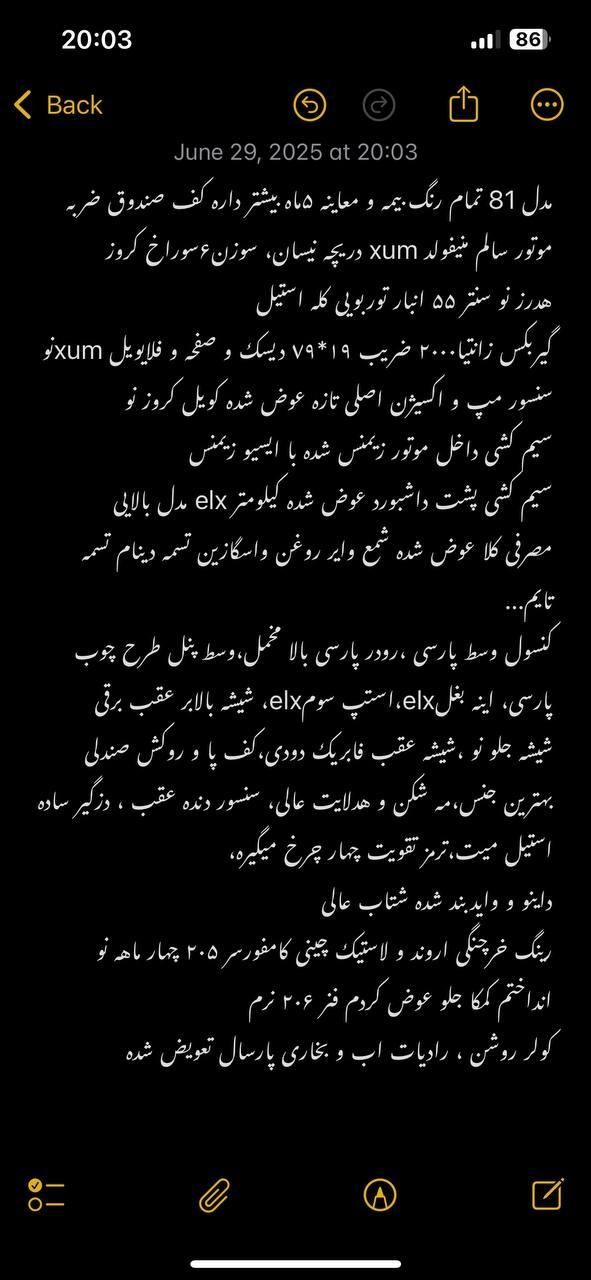 20:03
86
Back
June 29, 2025 at 20:03
مدل 81 تمام رنگ.بیمه و معاینه ۵ماه بیشتر داره کف صندوق ضربه
موتور سالم منیفولد xum دریچه نیسان، سوزن۶سوراخ کروز
هدرز نو سنتر ۵۵ انبار توربویی کله استیل
گیربکس زانتیا۲۰۰۰ ضریب ۱۹*۷۹ دیسک و صفحه و فلایویل xumنو
سنسور مپ و اکسیژن اصلی تازه عوض شده کویل کروز نو
سیم کشی داخل موتور زیمنس شده با ایسیو زیمنس
سیم کشی پشت داشبورد عوض شده کیلومتر elx مدل بالایی
مصرفی کلا عوض شده شمع وایر روغن واسگازین تسمه دینام تسمه
تایم...
کنسول وسط پارسی ،رودر پارسی بالا مخمل،وسط پنل طرح چوب
پارسی، اینه بغلelx،استپ سومelx، شیشه بالابر عقب برقی
شیشه جلو نو ،شیشه عقب فابریک دودی،کف پا و روکش صندلی
بهترین جنس،مه شکن و هدلایت عالی، سنسور دنده عقب ، دزگیر ساده
استیل میت،ترمز تقویت چهار چرخ میگیره،
داینو و وایدبند شده شتاب عالی
رینگ خرچنگی اروند و لاستیک چینی کامفورسر ۲۰۵ چهار ماهه نو
انداختم کمکا جلو عوض کردم فنر ۲۰۶ نرم
کولر روشن ، رادیات اب و بخاری پارسال تعویض شده